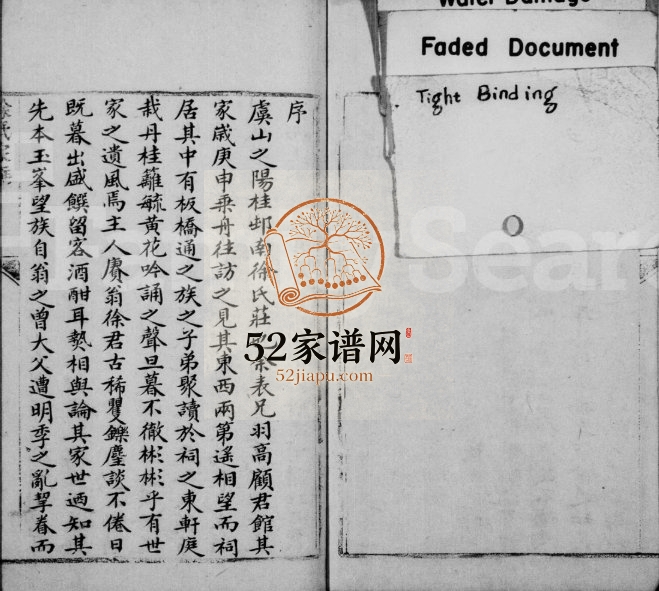 Water Damage
Faded Document
Tight Binding
序
虞山之陽桂邨南徐氏莊 表兄羽高顧君館其
家歲庚申乗舟往訪之見其東西兩第遥相望而祠
居其中有板橋通之族之子弟聚讀於祠之東軒庭
栽丹桂籬毓黄花吟誦之聲旦暮不徹彬彬乎有世
家之遺風焉主人賡翁徐君古稀矍鑠麈談不倦日
既暮出盛饌留客酒酣耳熱相與論其家世迺知其
先本玉峯望族自翁之曽大父遭明季之亂挈眷而
52家谱网
52jiapu.com
Sear